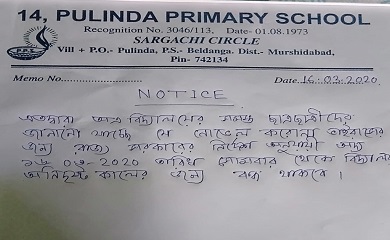 14, PULINDA PRIMARY SCHOOL
Recognition No. 3046/113, Date- 01.08.1973
SARGACHI CIRCLE
Vill + P.O.- Pulinda, P.S.- Beldanga. Dist.- Murshidabad,
Pin- 742134
P.P.S.
Memo No..................... Date 16.03.2020
NOTICE
এতদ্বারা অত্র বিদ্যালয়ের সমস্ত ছাত্রছাত্রীদের
জানানো যাচ্ছে যে নোভেল করোনা ভাইরাসের
জন্য রাজ্য সরকারের নির্দেশ অনুযায়ী অদ্য
১৬-০৩-2020 তারিখ সোমবার থেকে বিদ্যালয়
অনির্দিষ্ট কালের জন্য বন্ধ থাকবে।